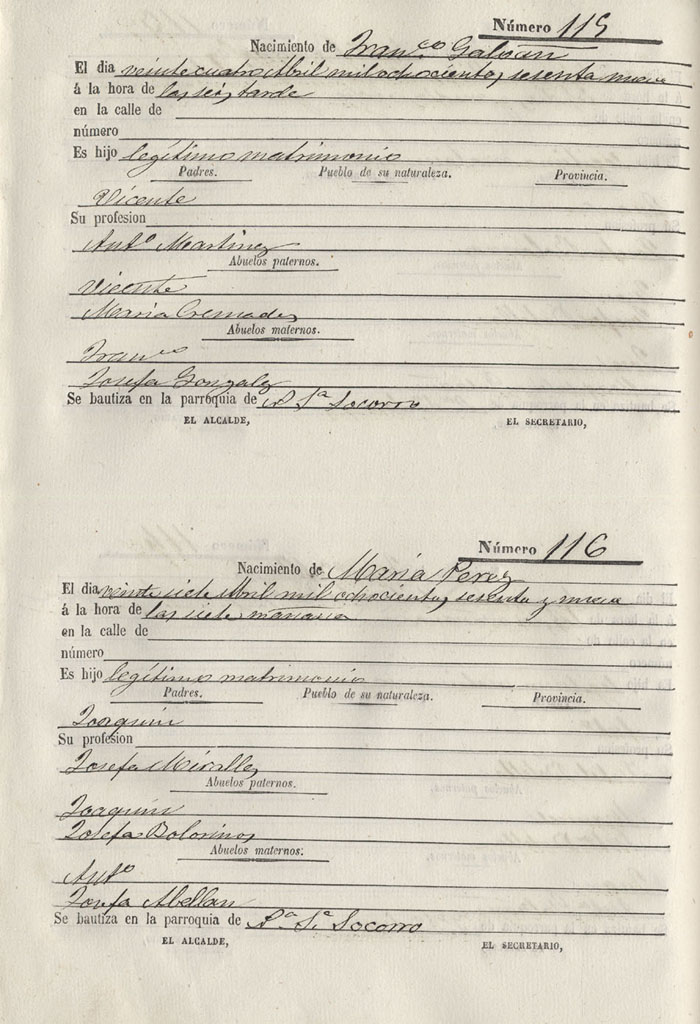 Número 115
Nacimiento de Franco Galvan
El dia veinte cuatro Abril mil ochocientos sesenta nueve
á la hora de las seis tarde
en la calle de
número
Es hijo legítimo matrimonio
Padres. Pueblo de su naturaleza. Provincia.
Vicente
Su profesion
Anto Martinez
Abuelos paternos.
Vicente
Maria Cremades
Abuelos maternos.
Franco
Josefa Gonzalez
Se bautiza en la parróquia de Sa Socorro
EL ALCALDE, EL SECRETARIO,
Número 116
Nacimiento de María Perez
El dia veinte siete Abril mil ochocientos sesenta y nueve
á la hora de las siete mañana
en la calle de
número
Es hijo legítimo matrimonio
Padres. Pueblo de su naturaleza. Provincia.
Joaquin
Su profesion
Josefa Miralles
Abuelos paternos.
Joaquin
Josefa Bolorinos
Abuelos maternos.
Anto
Josefa Abellan
Se bautiza en la parroquia de Ra Sa Socorro
EL ALCALDE, EL SECRETARIO,